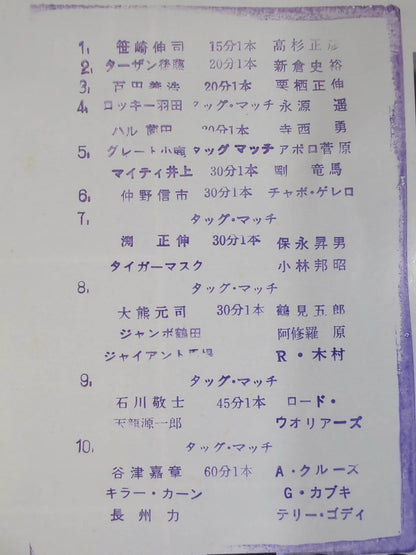 1. 笹崎伸司 15分1本 高杉正彦
2. ターザン後藤 20分1本 新倉史裕
3. 戸田義浩 20分1本 栗栖正伸
4. ロッキー羽田 タッグ・マッチ 永源 遥
ハル薗田 20分1本 寺西 勇
5. グレート小鹿 タッグマッチ アポロ菅原
マイティ井上 30分1本 剛 竜馬
6. 仲野信市 30分1本 チャボ・ゲレロ
7. タッグ・マッチ
渕 正伸 30分1本 保永昇男
タイガーマスク 小林邦昭
8. タッグ・マッチ
大熊元司 30分1本 鶴見五郎
ジャンボ鶴田 阿修羅 原
ジャイアント馬場 R・木村
9. タッグ・マッチ
石川敬士 45分1本 ロード・
天龍源一郎 ウオリアーズ
10. タッグ・マッチ
谷津嘉章 60分1本 A・クルーズ
キラー・カーン G・カブキ
長州 力 テリー・ゴディ